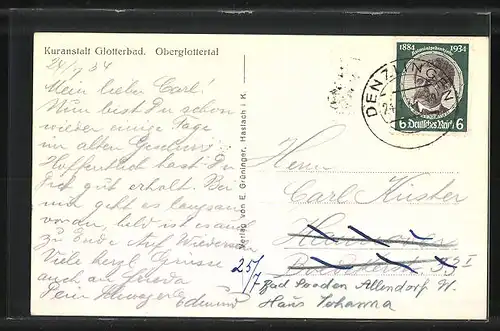 Kuranstalt Glotterbad. Oberglottertal
24/7 34
Mein lieber Carl!
Nun bist Du schon
wieder einige Tage
im alten Geschirr
Hoffentlich hast Du
Dich gut erholt. Bei
mir geht es langsam
voran, bald ist es auch
zu Ende Auf Wiedersehn
Viele herzl. Grüsse
auch an
Dein Schwager
Edmund
Verlag von E. Grüninger, Haslach i. K.
1884 1934
6 Deutsches Reich 6
DENZLINGEN
Herrn
Carl Küster
Hannover
53 I
25/7
Bad Sooden Allendorf W.
Haus Johanna